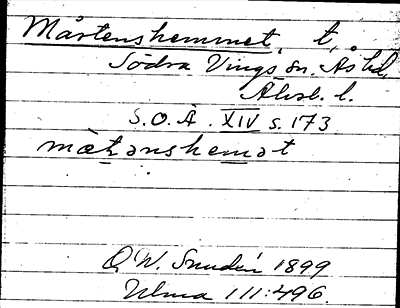 Mårtenshemmet, t,
Södra Vings sn. Ås hd,
Älvsb. l.
S.O.Ä. XIV s. 173
mæt̲anshem̲ət
O. W. 1899
Ulma 111:496.